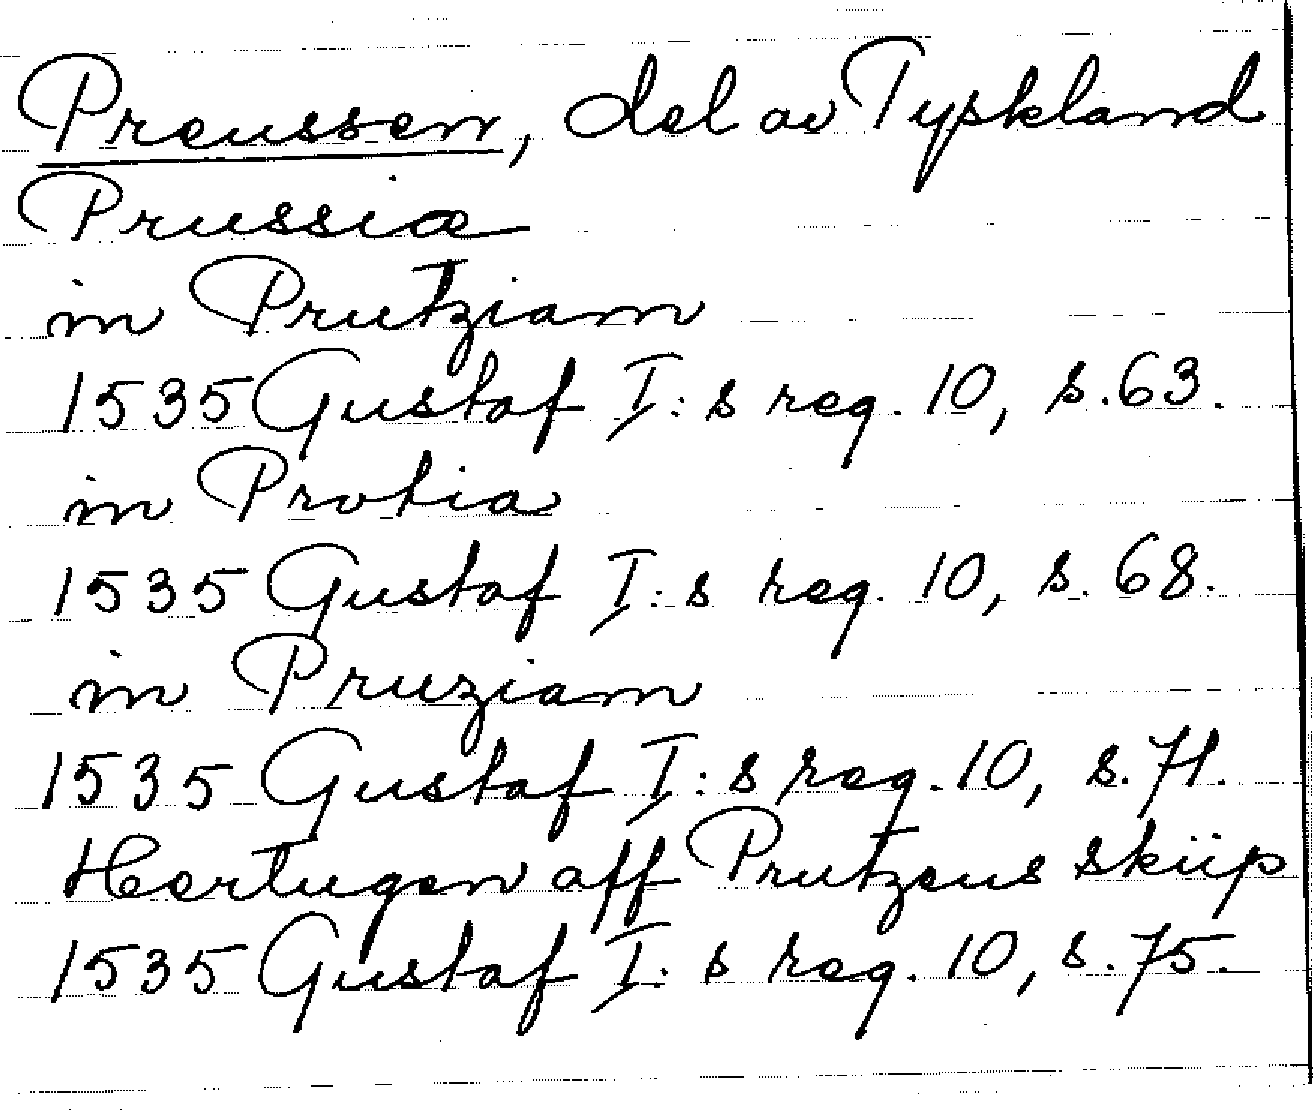 Preussen, del av Tyskland
Prussia
in Prutziam
1535 Gustaf I:s reg. 10, s. 63.
in Protia
1535 Gustaf I:s reg. 10, s. 68.
in Pruziam
1535 Gustaf I:s reg. 10, s. 71.
Hertugen aff Prutzens skiip
1535 Gustaf I:s reg. 10, s. 75.